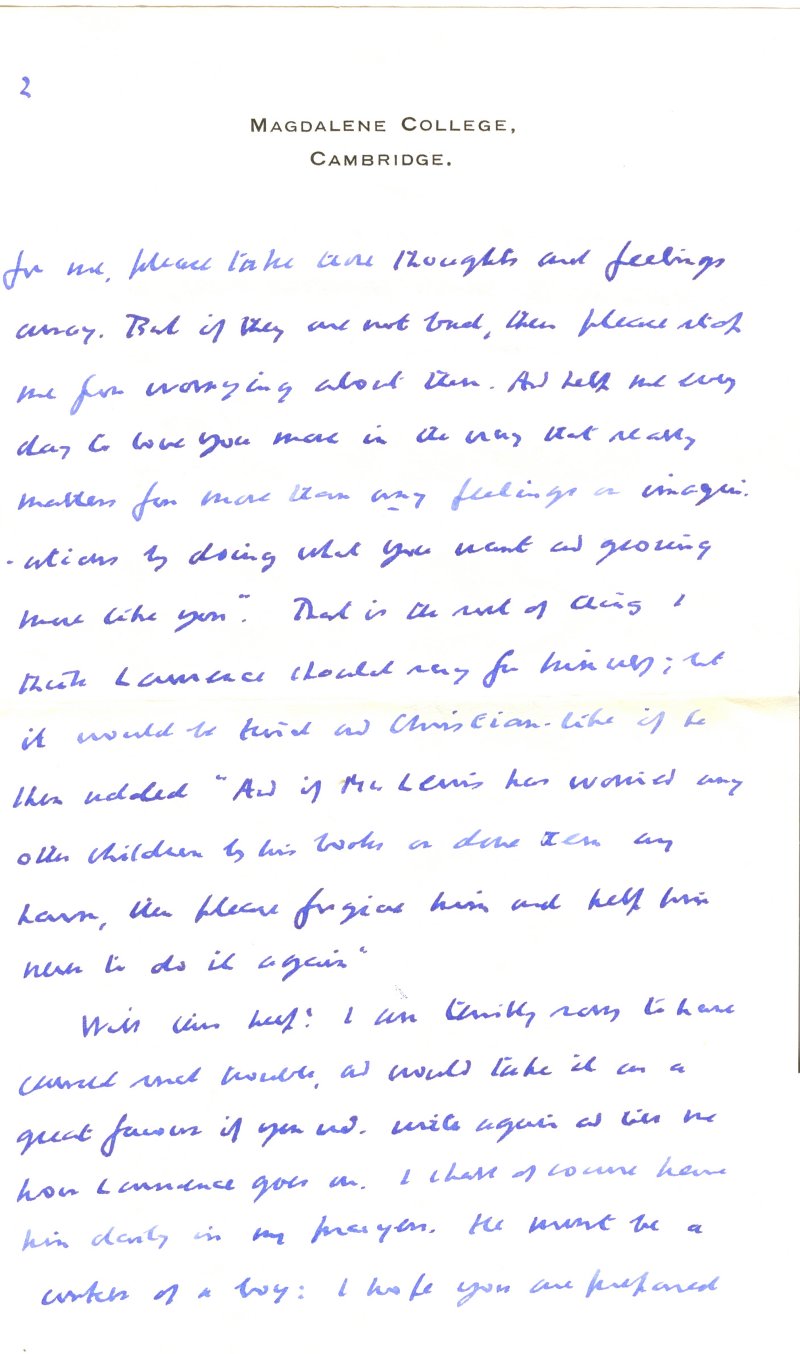 2
MAGDALENE COLLEGE,
CAMBRIDGE.
for me, please take those thoughts and feelings
away. But if they are not bad, then please stop
me from worrying about them. And help me every
day to love you more in the way that really
matters far more than any feelings or imagin-
-ations by doing what you want and growing
more like you". That is the sort of thing I
think Laurence should say for himself; but
it would be kind and Christian-like if he
then added "And if Mr. Lewis has worried any
other children by his books or done them any
harm, then please forgive him and help him
never to do it again"
Will this help? I am terribly sorry to have
caused such trouble, and would take it as a
great favour if you wd. write again and tell me
how Laurence goes on. I shall of course have
him daily in my prayers. He must be a
corker of a boy: I hope you are prepared